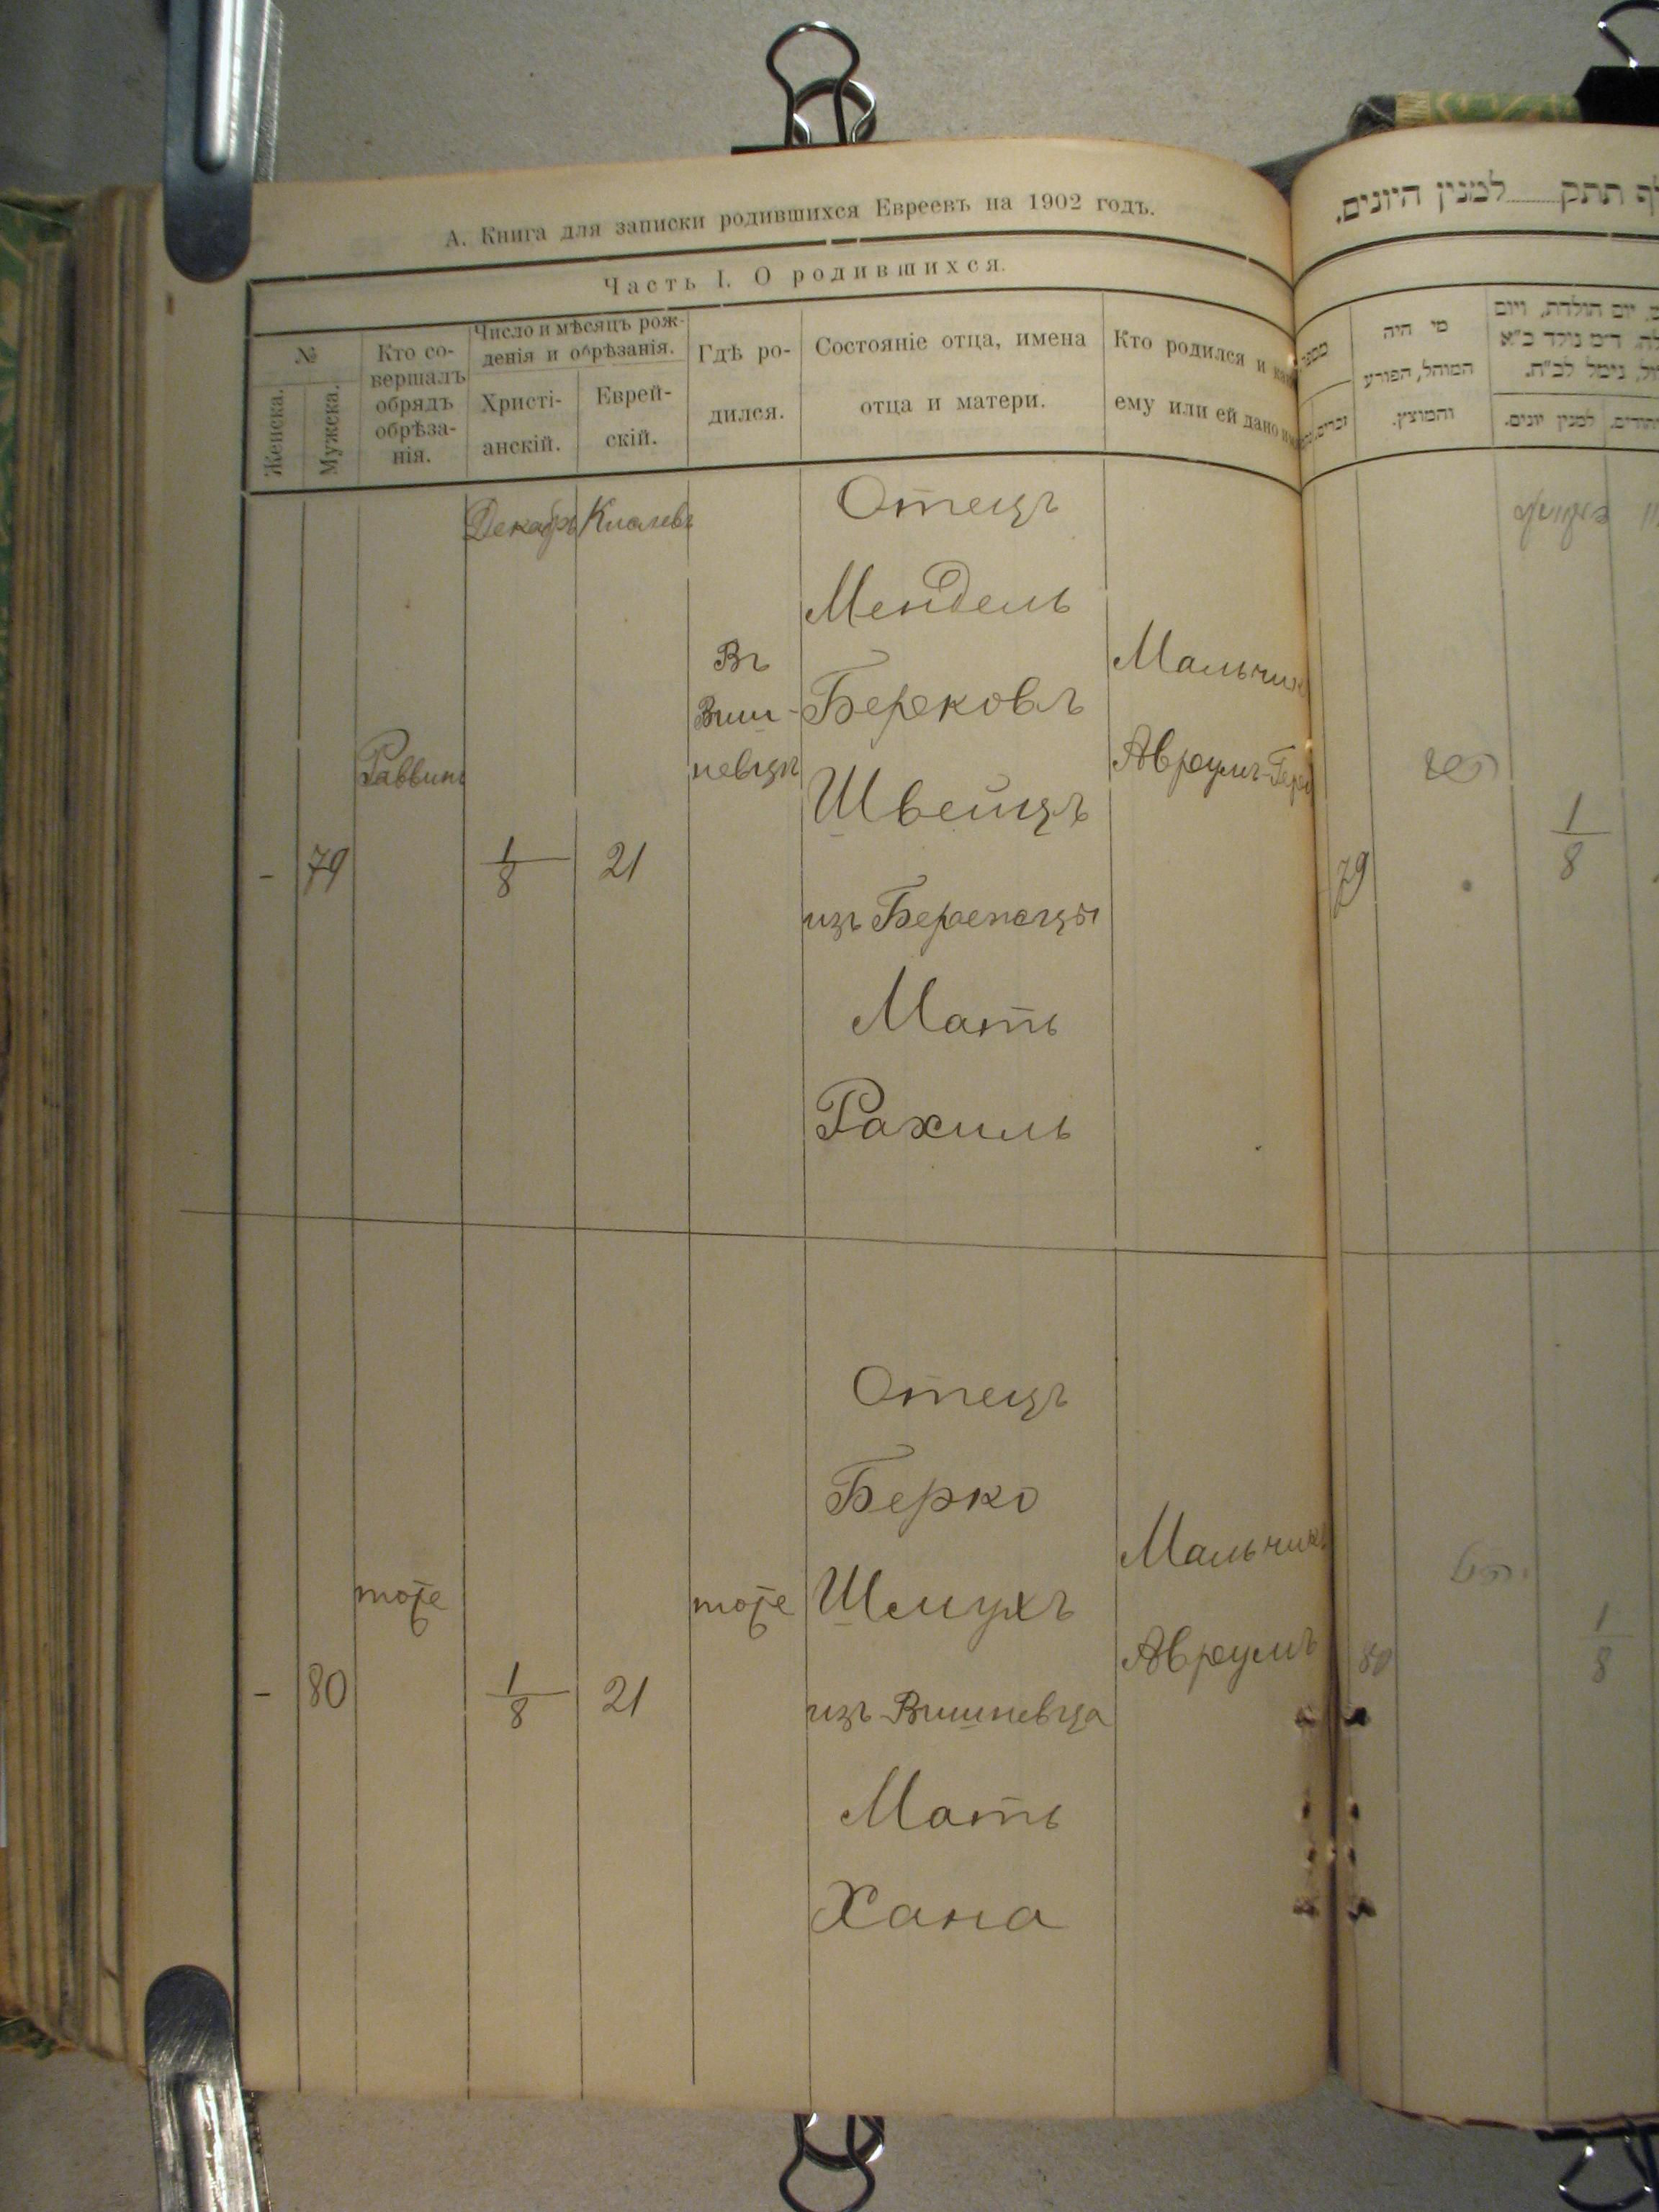 А. Книга для записки родившихся Евреевъ на 1902 годъ.
Часть I. О родившихся.
№
Женска.
Мужеска.
Кто со-
вершалъ
обрядъ
обрѣза-
нія.
Число и мѣсяцъ рож-
денія и обрѣзанія.
Христі-
анскій.
Еврей-
скій.
Гдѣ ро-
дился.
Состояніе отца, имена
отца и матери.
Кто родился и как
ему или ей дано им
-
79
Раввинъ
Декабрь
1
8
Кислевъ
21
Въ
Виш-
невцѣ
Отецъ
Мендель
Берковъ
Швейцъ
изъ
Мать
Рахиль
Мальчикъ
Авроумъ-
-
80
тоже
1
8
21
тоже
Отецъ
Берко
Шмухъ
изъ Вишневца
Мать
Хана
Мальчикъ
Авроумъ
תתק למנין היונים.
מספר
זכרים.
מי היה
המוהל, הפורע
והמוצץ.
יום הולדת, ויום
למנין יונים.
79
1
8
80
1
8